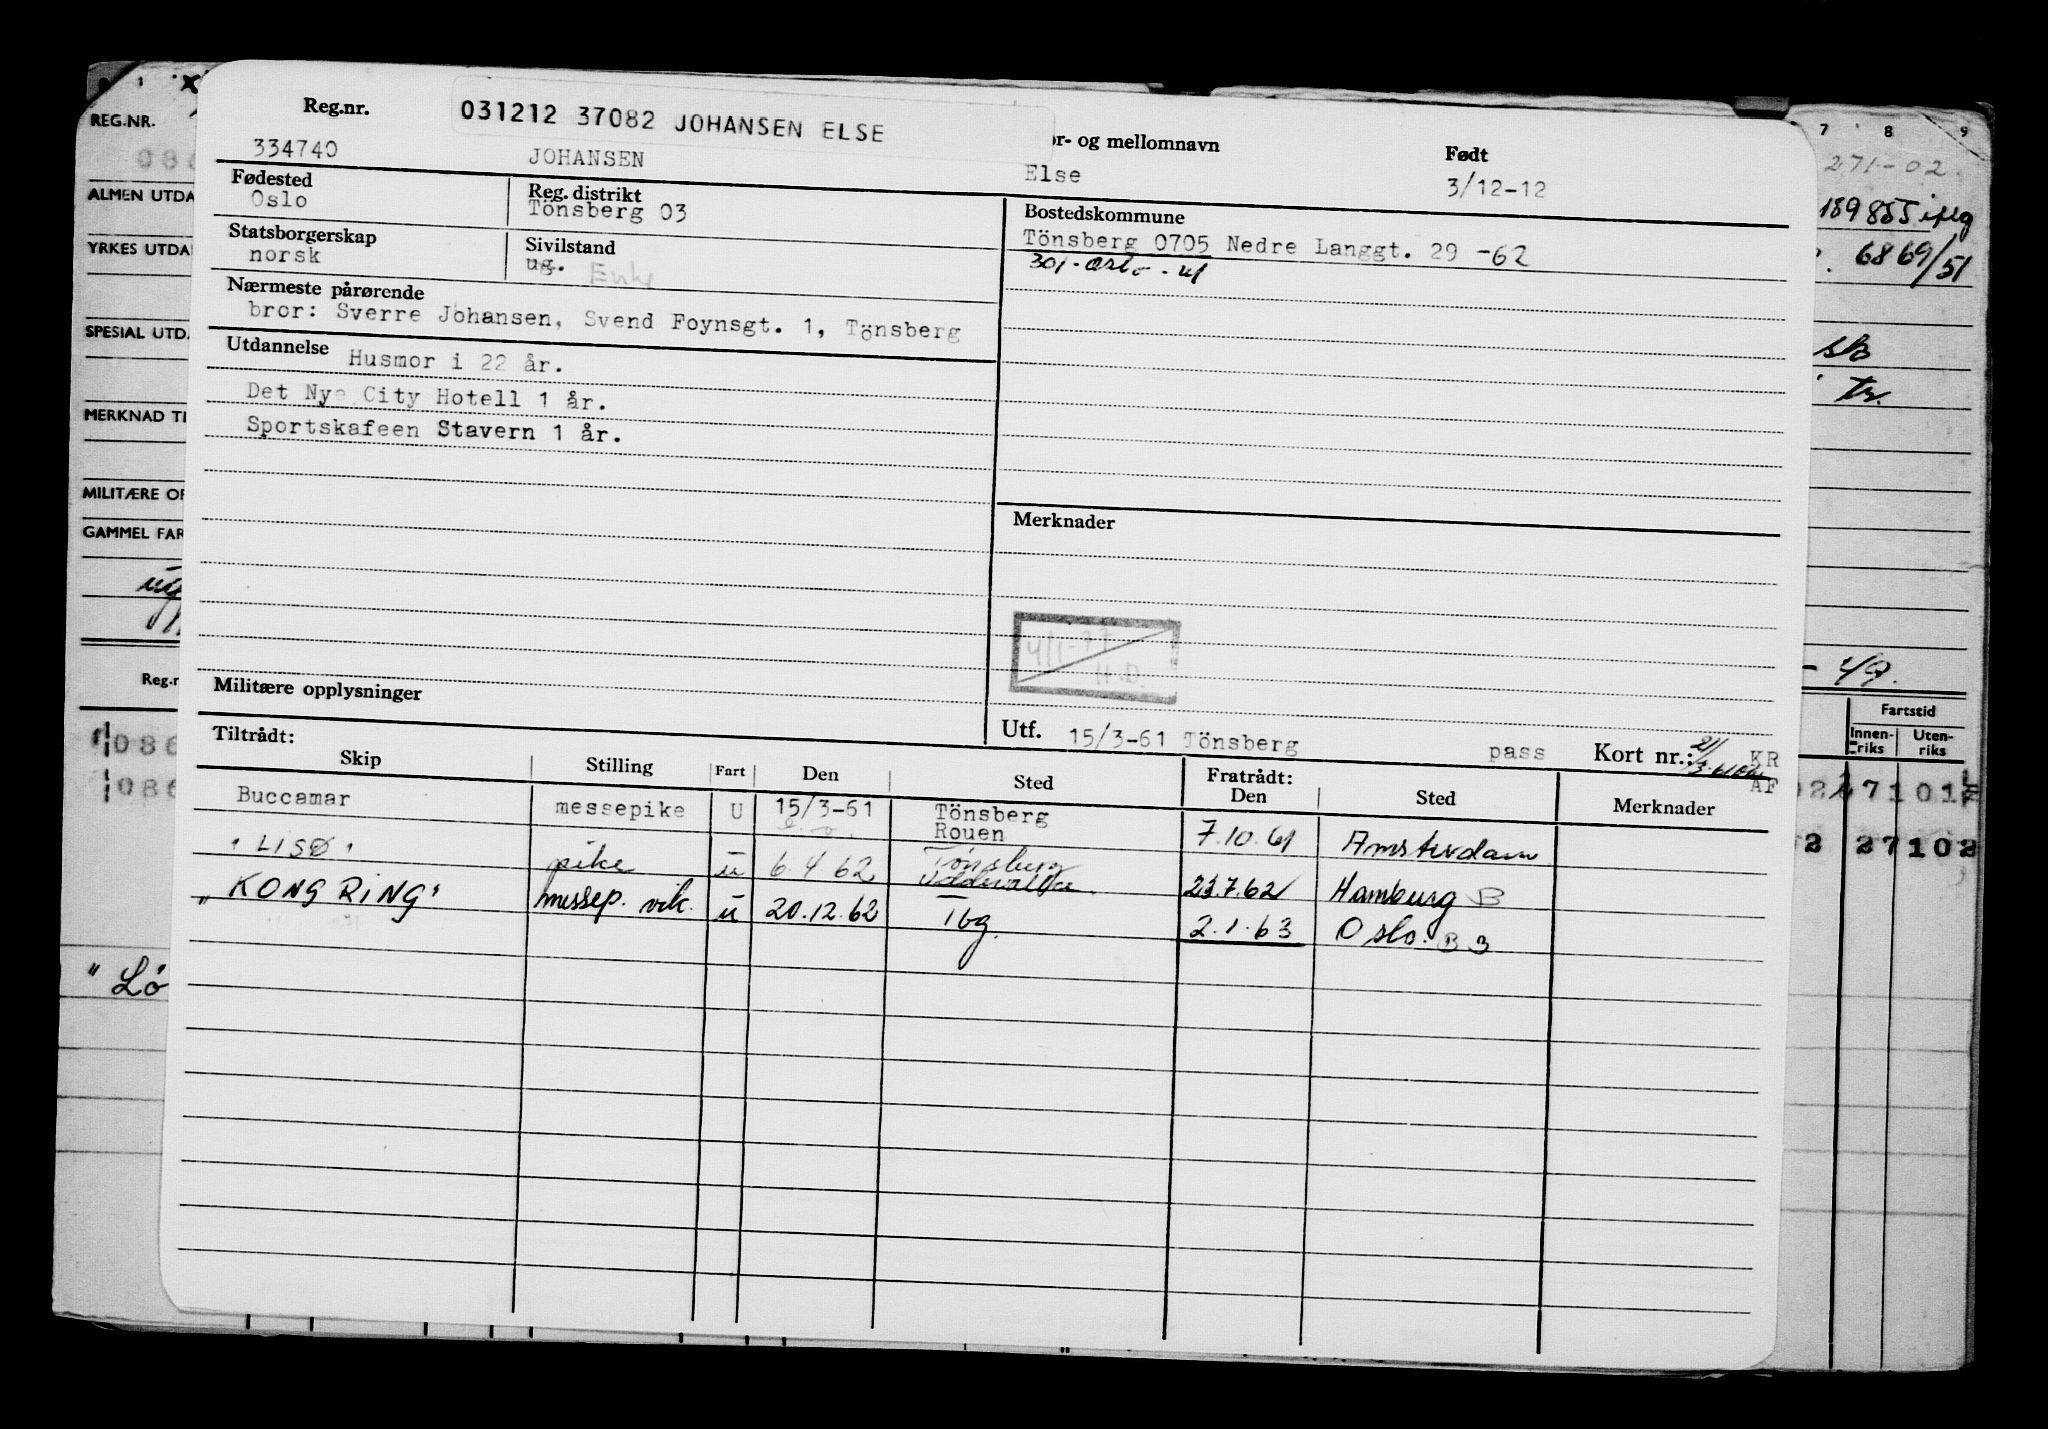 REG.NR.
ALMEN UTDA
YRKES UTDA
SPESIAL UTD.
MERKNAD TI
MILITÆRE OP
GAMMEL FAR
Reg.n
086
086
"Lø
031212 37082 JOHANSEN ELSE
Reg.nr.
or- og mellomnavn
Født
334740
JOHANSEN
Else
3/12-12
Fødested
Oslo
Reg. distrikt
Tönsberg 03
Bostedskommune
Tönsberg 0705 Nedre Langgt. 29 -62
301-Oslo-
Statsborgerskap
norsk
Sivilstand
ug. Enke
Nærmeste pårørende
bror: Sverre Johansen, Svend Foynsgt. 1, Tönsberg
Utdannelse
Husmor i 22 år.
Det Nye City Hotell 1 år.
Sportskafeen Stavern 1 år.
Merknader
4/1-77
H.D.
Militære opplysninger
Utf. 15/3-61 Tönsberg pass Kort nr.: KR
AF
Tiltrådt:
Skip Stilling Fart Den Sted Fratrådt: Den Sted Merknader
Buccamar messepike U 15/3-61 Tönsberg
Rouen 7.10.61 Amsterdam
"LISØ" pike u 6.4.62 Tönsberg
Uddevalla. 23.7.62 Hamburg B
"KONG RING" messep. vik. u 20.12.62 Tbg. 2.1.63 Oslo. B 3
7 8 9
271-02
189855
6869/51
sk
tr.
Fartstid
Innen-riks Uten-riks
27102